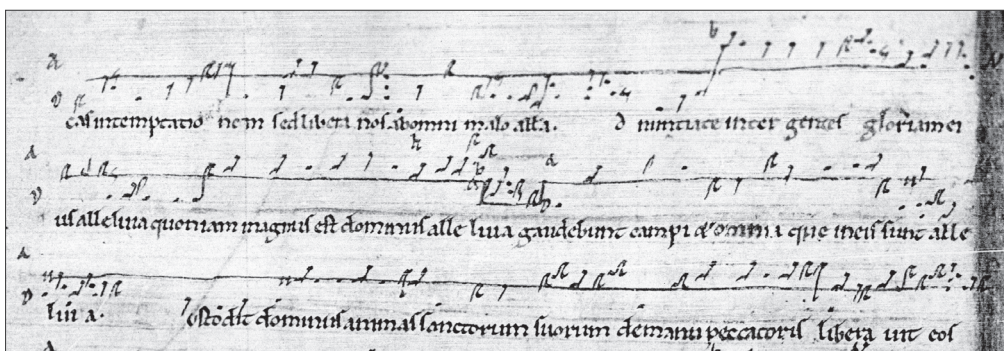 cas intemptatio nem sed libera nos abomni malo alla. d nuntiate inter gentes gloriam ei
us alleluia quoniam magnus est dominus alle luia gaudebunt campi & omnia que ineis sunt alle
luia. ustodit dominus animas sanctorum suorum demanu peccatoris libera uit eos